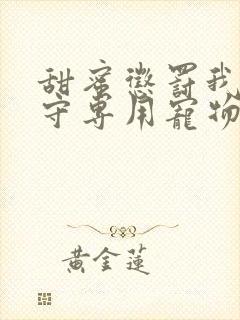 甜蜜懲罰我
守專用寵物
黃金蓮